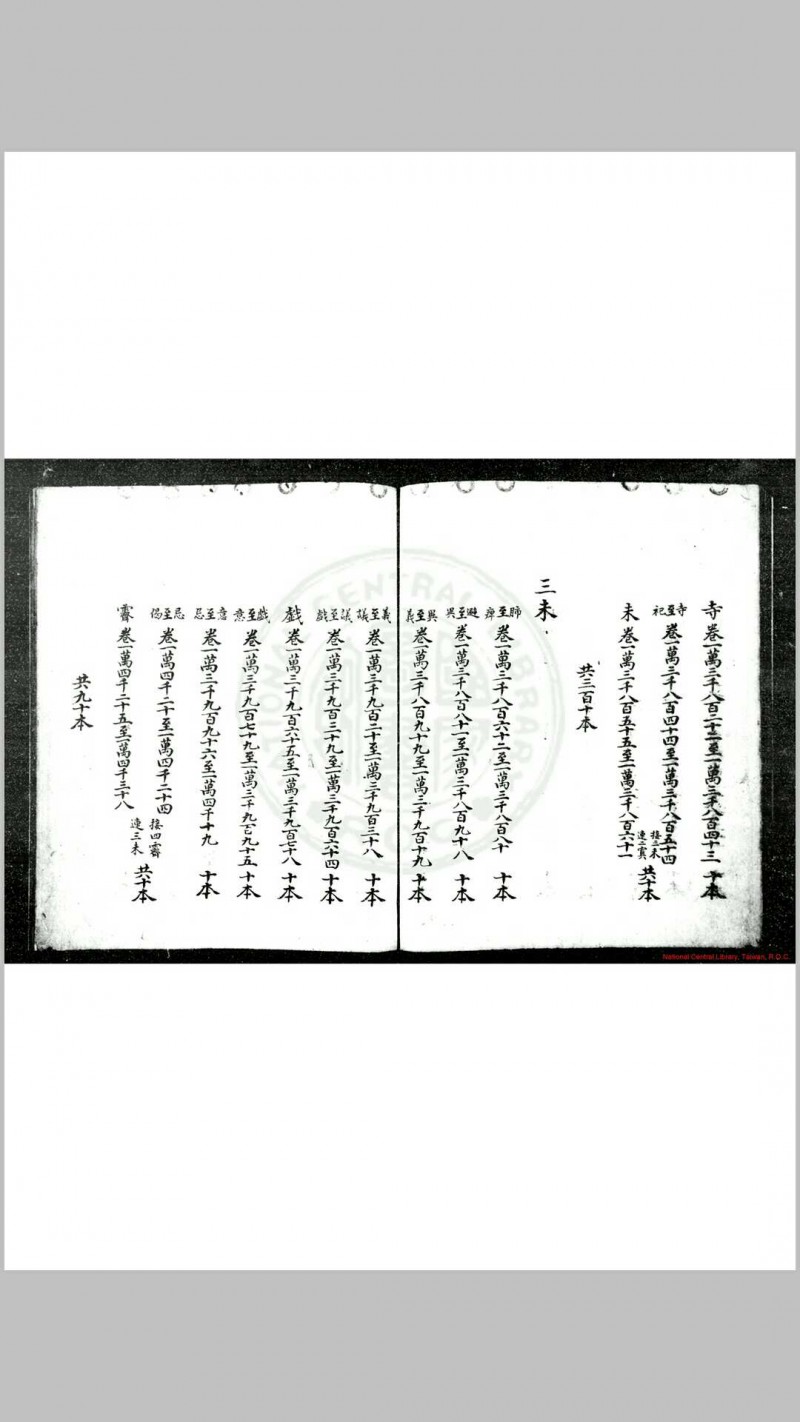 寺 卷一萬三千八百二十二至一萬三千八百四十三 十本
寺至祀 卷一萬三千八百四十四至一萬三千八百五十四
接三未連二寘 共十本
未 卷一萬三千八百五十五至一萬三千八百六十一
共三百十本
三未
至 卷一萬三千八百六十二至一萬三千八百八十 十本
至異 卷一萬三千八百八十一至一萬三千八百九十八 十本
異至義 卷一萬三千八百九十九至一萬三千九百十九 十本
義至議 卷一萬三千九百二十至一萬三千九百三十八 十本
議至戲 卷一萬三千九百三十九至一萬三千九百六十四 十本
戲 卷一萬三千九百六十五至一萬三千九百七十八 十本
戲至意 卷一萬三千九百七十九至一萬三千九百九十五 十本
意至忌 卷一萬三千九百九十六至一萬四千十九 十本
忌至 卷一萬四千二十至一萬四千二十四
接四霽連三未 共十本
霽 卷一萬四千二十五至一萬四千三十八
共九十本
NATIONAL CENTRAL LIBRARY
National Central Library, Taiwan, R.O.C.